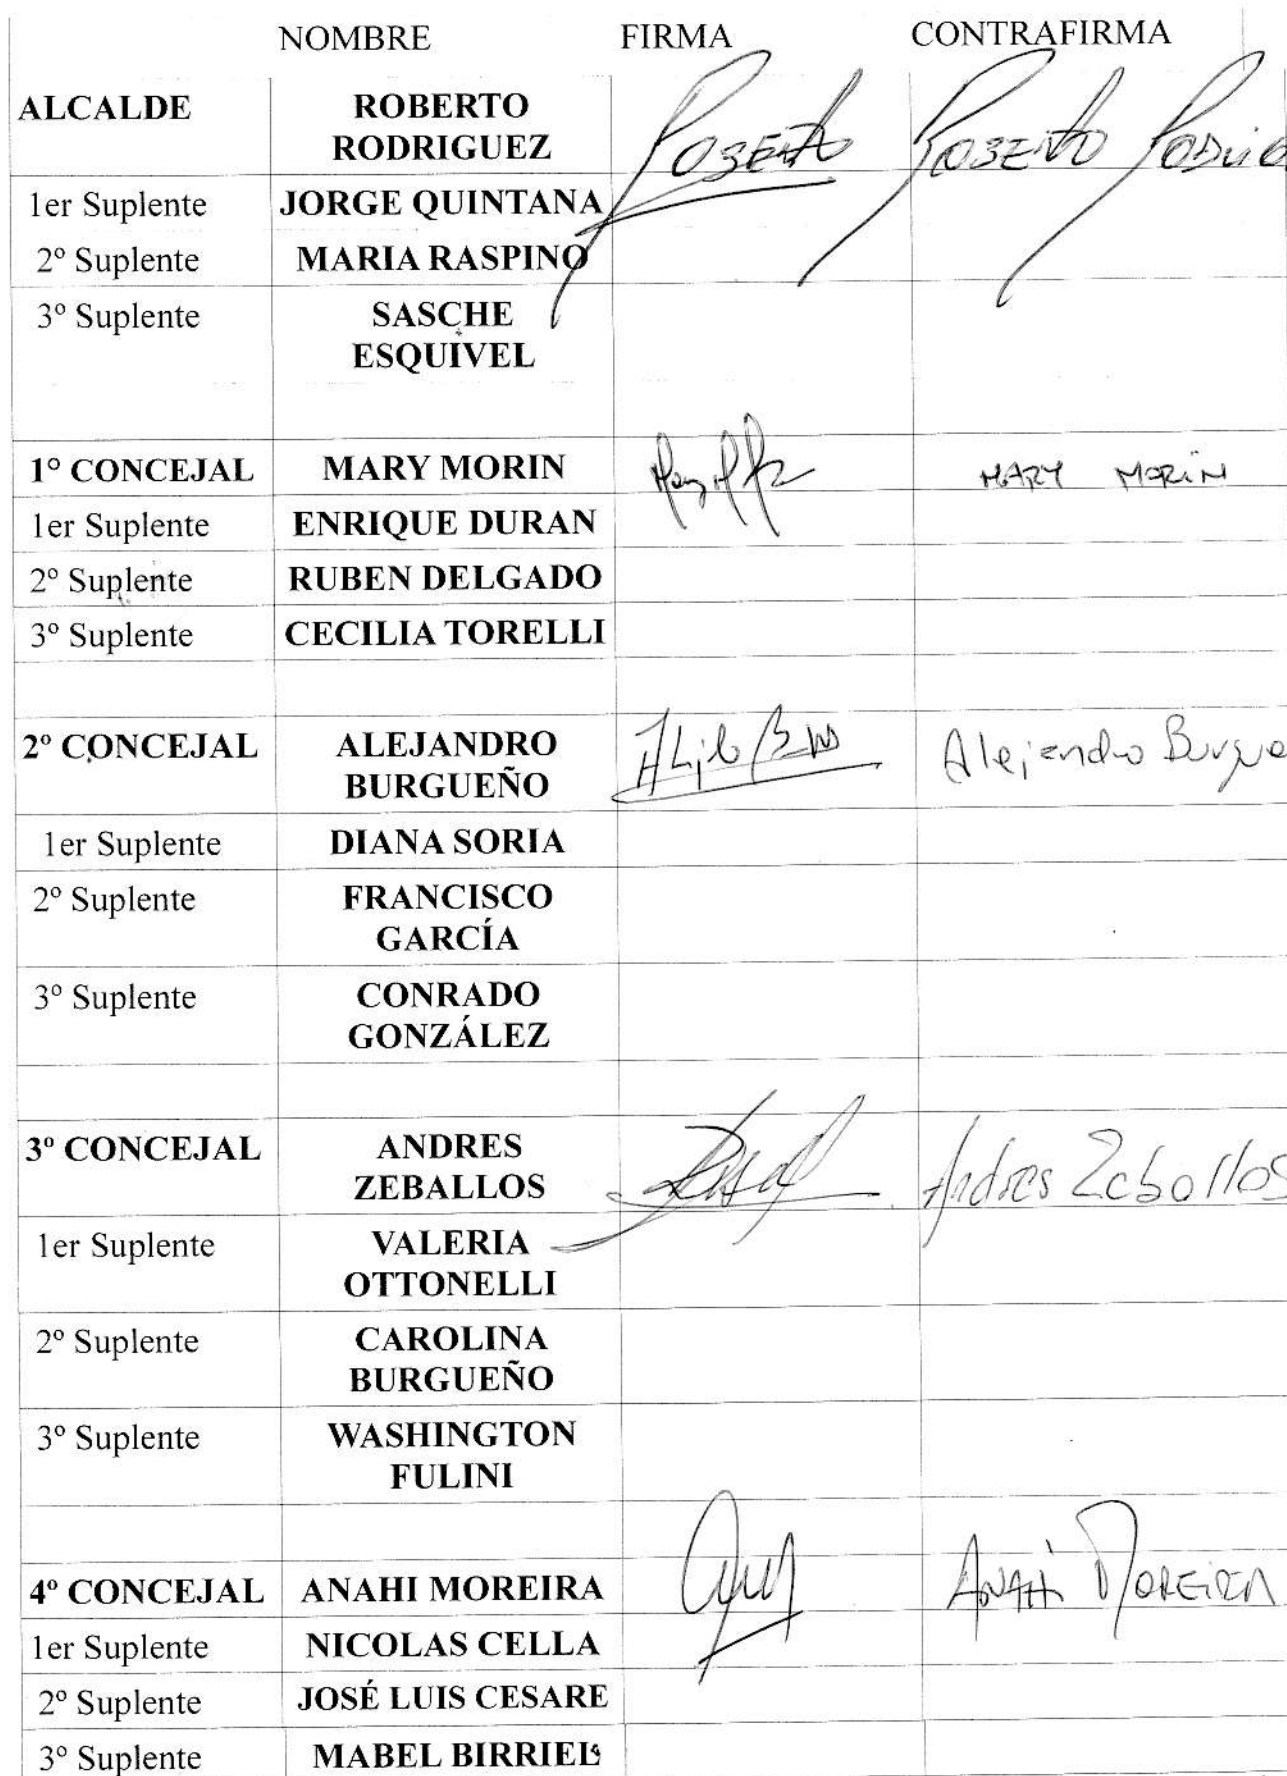 NOMBRE FIRMA CONTRAFIRMA
ALCALDE ROBERTO
RODRIGUEZ Roberto Roberto
1er Suplente JORGE QUINTANA
2º Suplente MARIA RASPINO
3º Suplente SASCHE
ESQUIVEL
1º CONCEJAL MARY MORIN MARY MORiN
1er Suplente ENRIQUE DURAN
2º Suplente RUBEN DELGADO
3º Suplente CECILIA TORELLI
2º CONCEJAL ALEJANDRO Alejandro Burgue
BURGUEÑO
1er Suplente DIANA SORIA
2º Suplente FRANCISCO
GARCÍA
3º Suplente CONRADO
GONZÁLEZ
3º CONCEJAL ANDRES
ZEBALLOS Andres Zeballos
1er Suplente VALERIA
OTTONELLI
2º Suplente CAROLINA
BURGUEÑO
3º Suplente WASHINGTON
FULINI
4º CONCEJAL ANAHI MOREIRA ANAHí MOREIRA
1er Suplente NICOLAS CELLA
2º Suplente JOSÉ LUIS CESARE
3º Suplente MABEL BIRRIEL